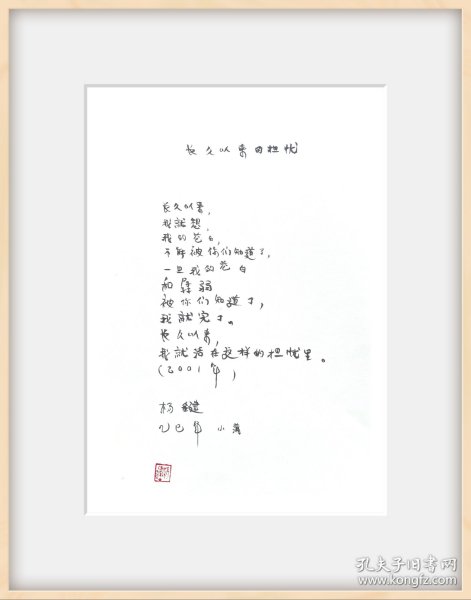 长久以来的担忧
长久以来，
我就想，
我的苍白，
不能被你们知道了，
一旦我的苍白
和孱弱
被你们知道了，
我就完了。
长久以来，
我就活在这样的担忧里。
（2001年）
杨键
乙巳年 小满
孔夫子旧书网
www.kongfz.com